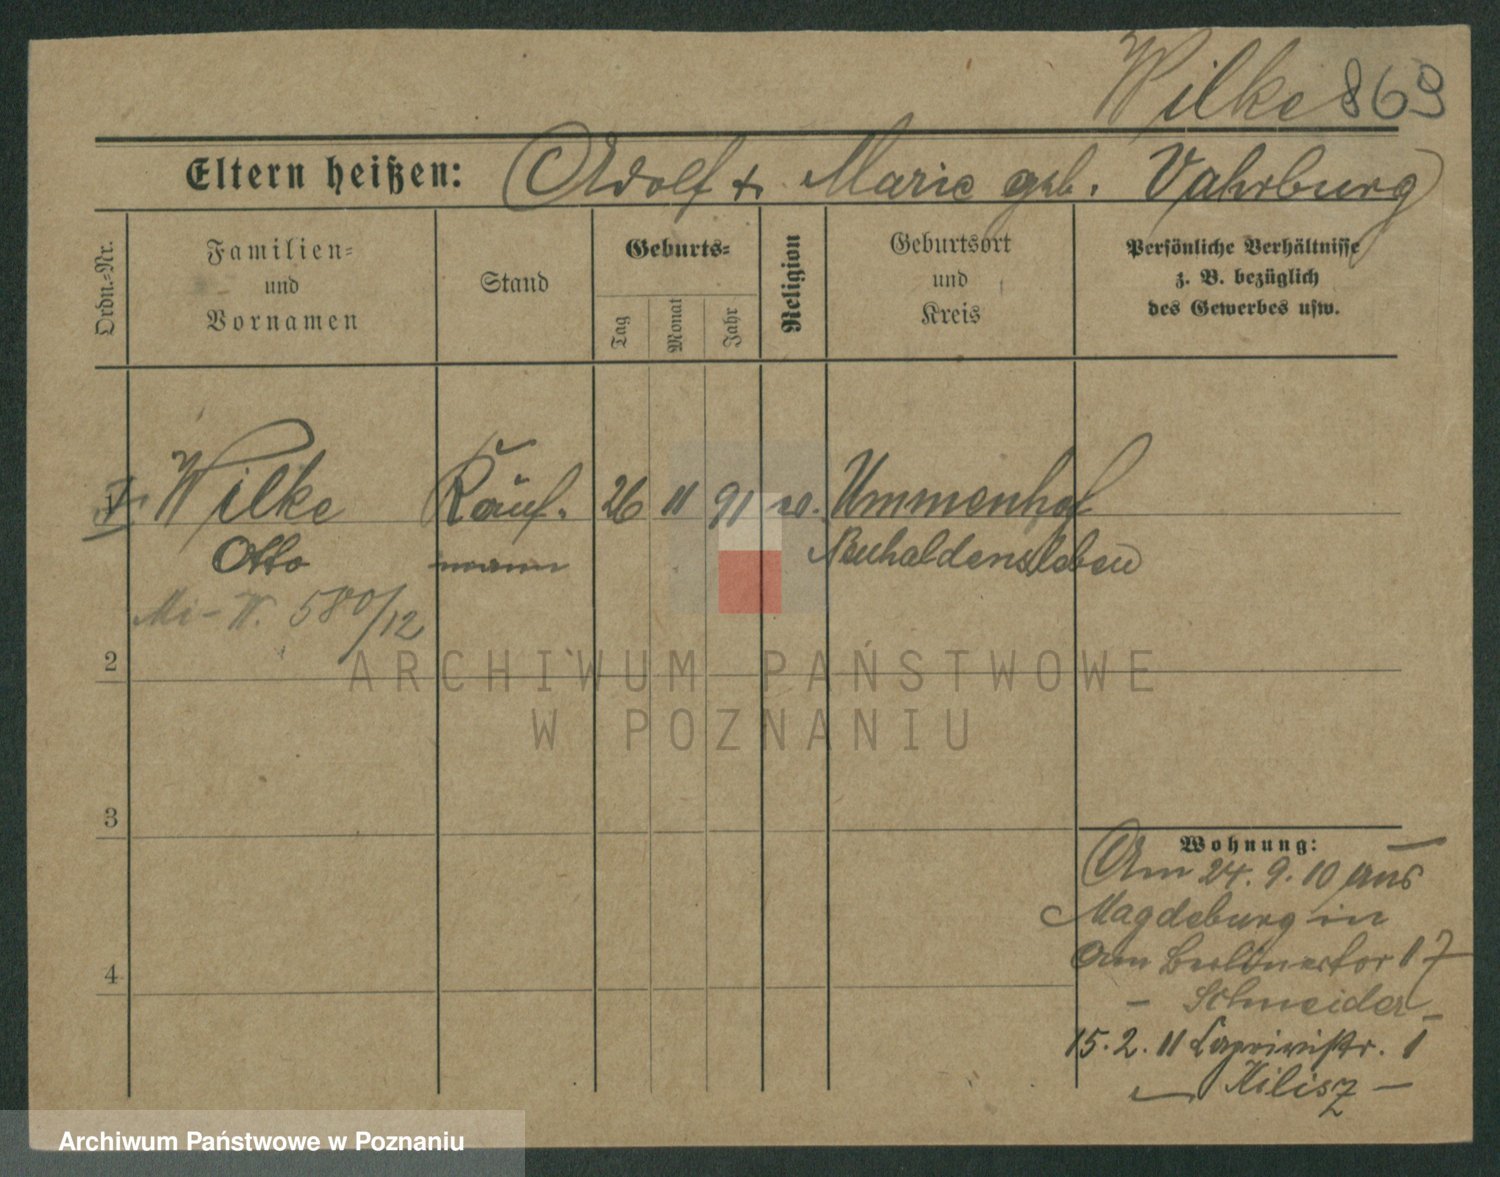 Wilke 869
Eltern heißen: Adolf & Marie geb. Vahrburg
Ordn.-Nr.
Familien-
und
Vornamen
Stand
Geburts-
Tag
Monat
Jahr
Religion
Geburtsort
und
Kreis
Persönliche Verhältnisse
z. B. bezüglich
des Gewerbes usw.
1 Wilke Kauf- 26 11 91 ev. Ummenhof
Otto mann Neuhaldensleben
Mi-W. 580/12
2
3
4
Wohnung:
Am 24.9.10 aus
Magdeburg in
Am Berlinertor 17
- Schneider -
15.2.11 Caprivistr. 1
- Kilisz -
ARCHIWUM PAŃSTWOWE
W POZNANIU
Archiwum Państwowe w Poznaniu